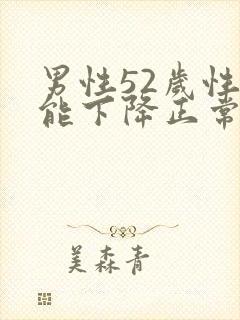 男性52歲性
能下降正常
美森青